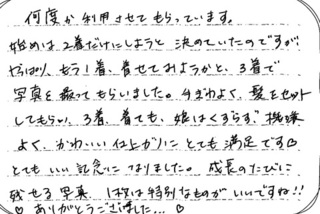 何度か利用させてもらっています。
始めは、2着だけにしようと決めていたのですが、
やっぱり、もう1着、着せておようかと、3着で
写真を撮ってもらいました。今まわよく、髪をセット
してもらい、3着、着ても、娘はくずらず、機嫌
よく、かわいい仕上がりにとても満足です♡
とてもいい記念になりました。成長のたびに
残せる写真、1枚は特別なものがいいですね!!
♡ありがとうございました…♡